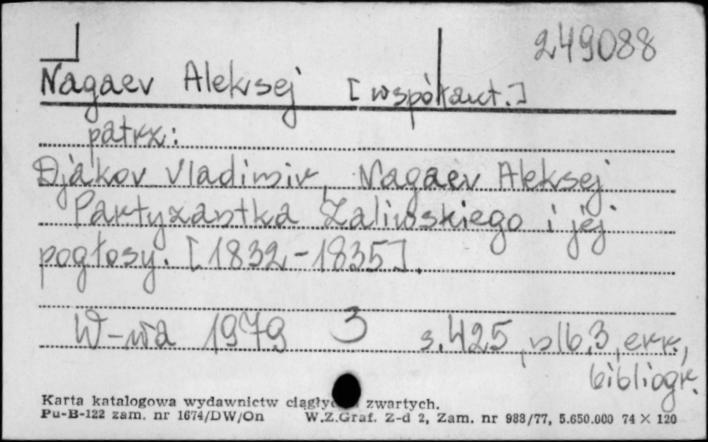 249088
Nagaev Aleksej [współaut.]
patrz:
Djakov Vladimir, Nagaev Aleksej
Partyzantka Zaliwskiego i jej
pogłosy. [1832-1835].
W-wa 1979 3 s.425, nlb.3, err.,
bibliogr.
Karta katalogowa wydawnictw ciągłych zwartych.
Pu-B-122 zam. nr 1674/DW/On W.Z.Graf. Z-d 2, Zam. nr 988/77, 5.650.000 74 × 120